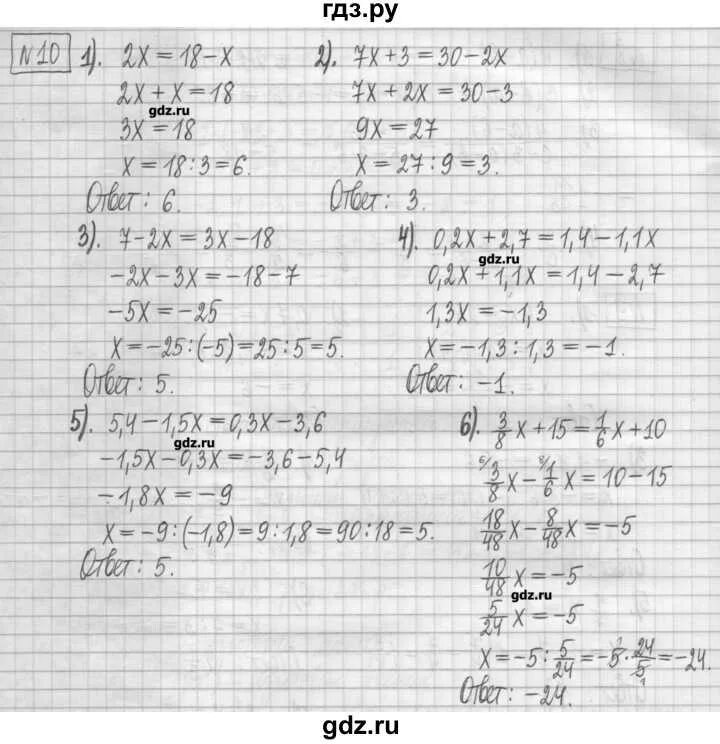 гдз.ру
№10
1). 2x = 18 - x
2x + x = 18
gdz.ru
3x = 18
x = 18 : 3 = 6.
Ответ: 6.
2). 7x + 3 = 30 - 2x
7x + 2x = 30 - 3
9x = 27
x = 27 : 9 = 3.
Ответ: 3.
3). 7 - 2x = 3x - 18
-2x - 3x = -18 - 7
-5x = -25
x = -25 : (-5) = 25 : 5 = 5.
Ответ: 5.
4). 0,2x + 2,7 = 1,4 - 1,1x
gdz.ru
0,2x + 1,1x = 1,4 - 2,7
1,3x = -1,3
x = -1,3 : 1,3 = -1.
Ответ: -1.
5). 5,4 - 1,5x = 0,3x - 3,6
gdz.ru
-1,5x - 0,3x = -3,6 - 5,4
-1,8x = -9
x = -9 : (-1,8) = 9 : 1,8 = 90 : 18 = 5.
Ответ: 5.
6). 3/8 x + 15 = 1/6 x + 10
6/ 3/8 x - 8/ 1/6 x = 10 - 15
18/48 x - 8/48 x = -5
10/48 x = -5
gdz.ru
5/24 x = -5
x = -5 : 5/24 = -5 · 24/5 = -24.
Ответ: -24.
gdz.ru